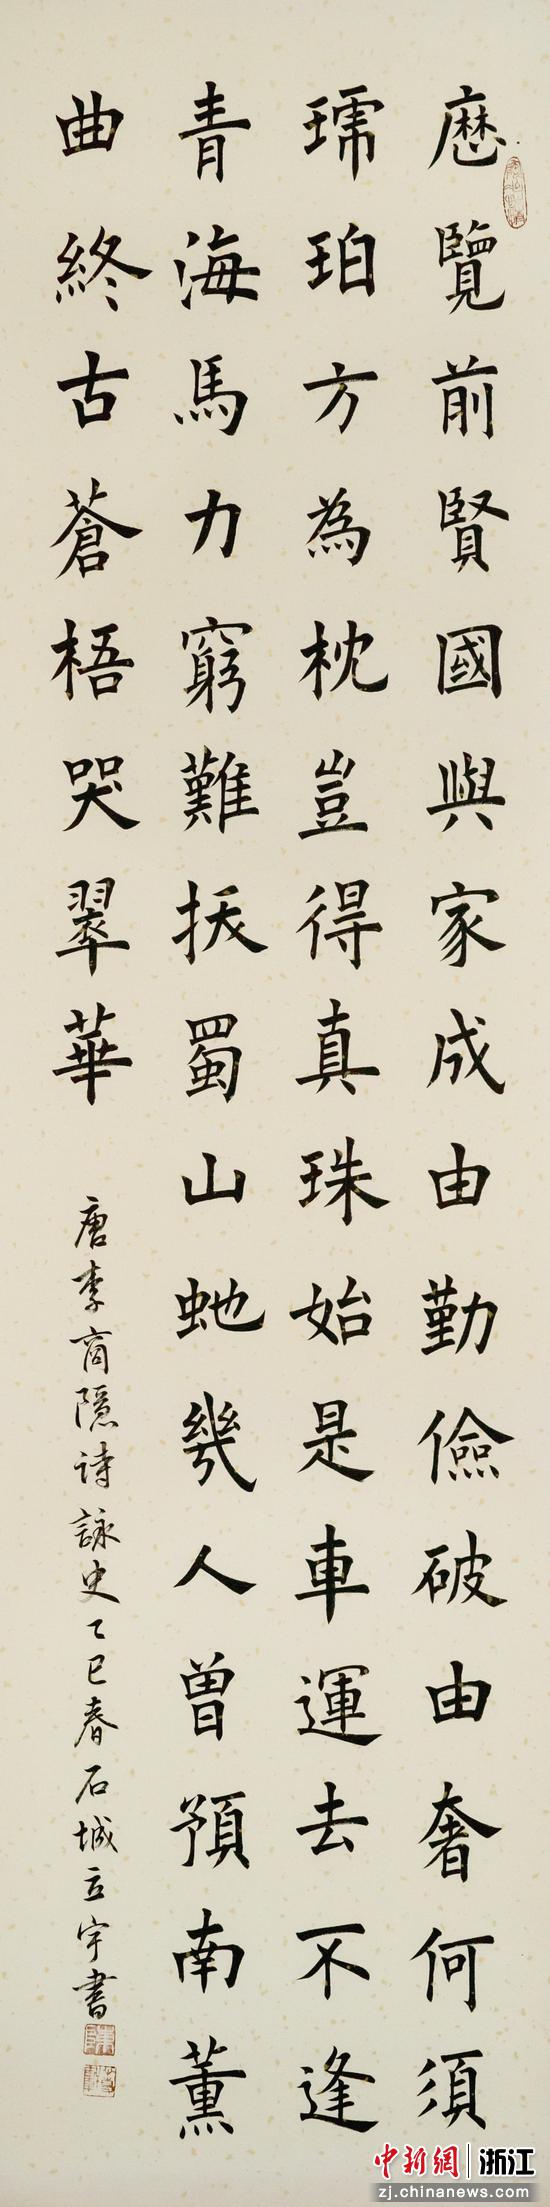 歷覽前賢國與家成由勤儉破由奢何須
琥珀方為枕豈得真珠始是車運去不逢
青海馬力窮難拔蜀山虵幾人曾預南薰
曲終古蒼梧哭翠華
唐李商隱詩詠史乙巳春石城立宇書
中新網 浙江
zj.chinanews.com